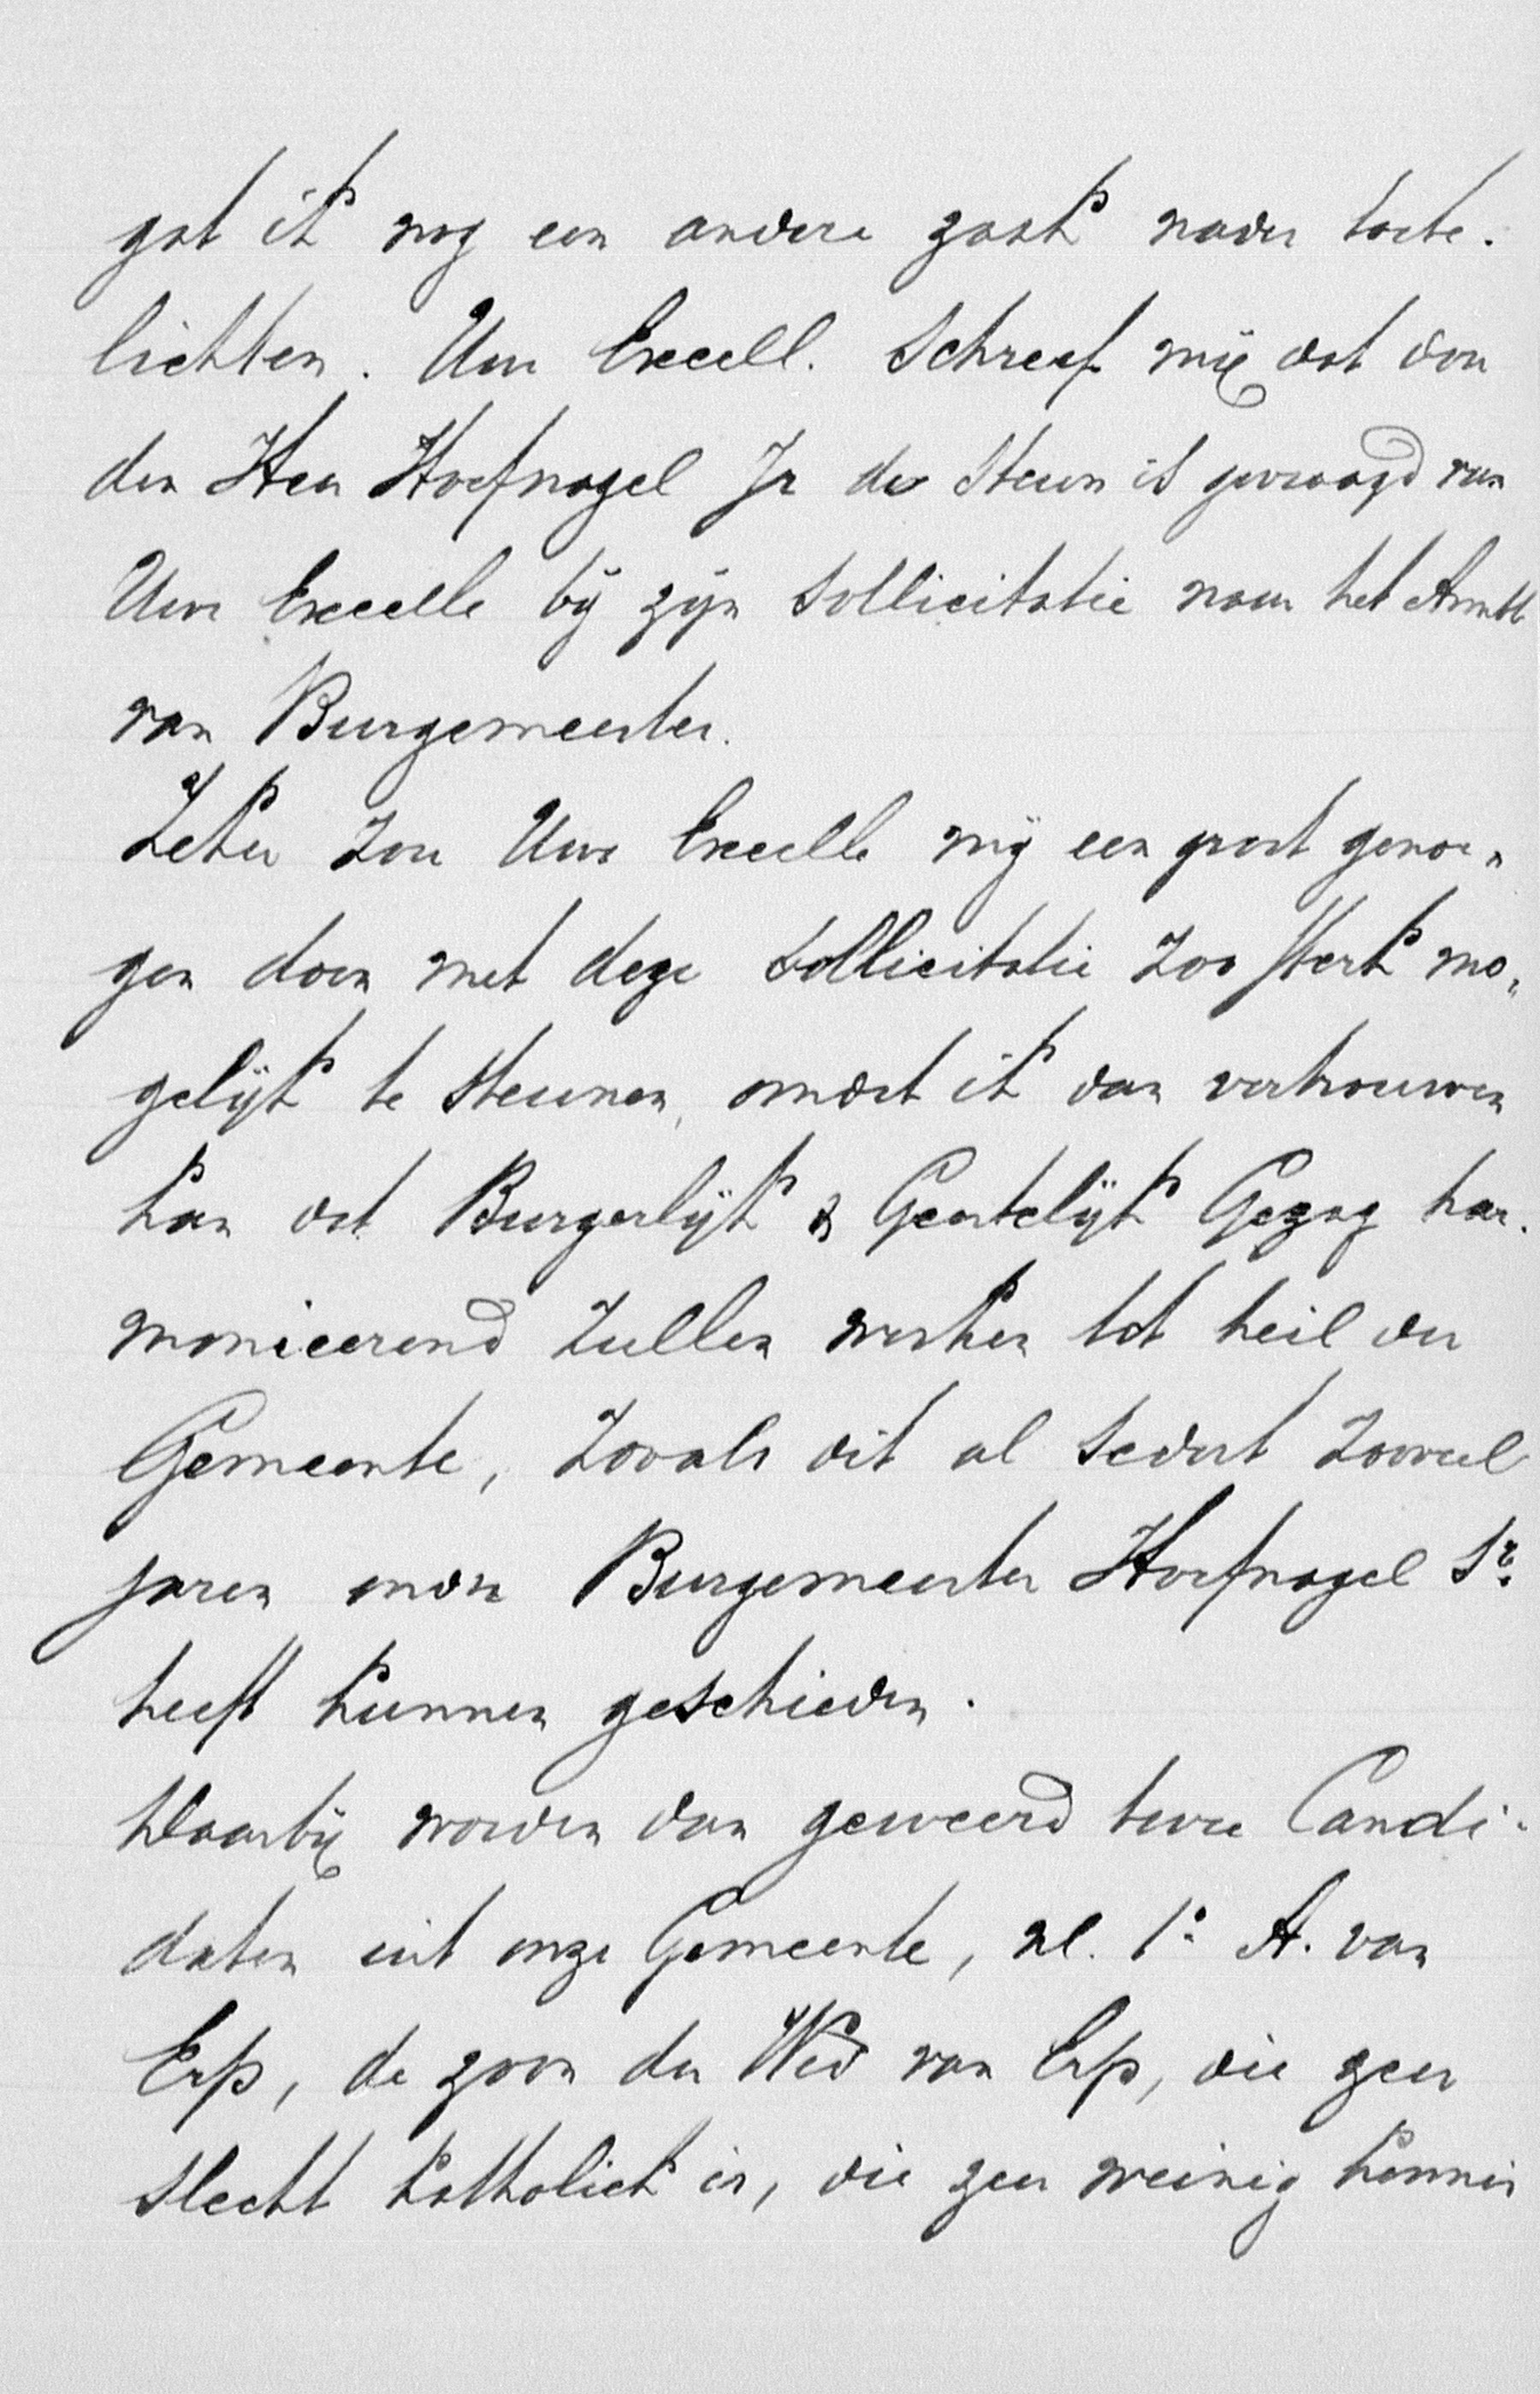 gat ik nog een andere zaak nader toete.
lichten. Uwe Excell. Schreef mij dat door
den Heer Hoefnagel Jr de Steun is gevraagd van
Uwe Excelle bij zijn Sollicitatie naar het Ambt
van Burgemeester.
Zeker zou Uwe Excelle mij een groot genoe„
gen doen met deze Sollicitatie zoo sterk mo„
gelijk te Steunen, omdat ik dan vertrouwen
kan dat Burgerlijk & Geestelijk Gezag har.
monieerend zullen werken tot heil der
Gemeente, zooals dit al Sedert zooveel
jaren onder Burgemeester Hoefnagel Sr.
heeft kunnen geschieden.
Daarbij worden dan geweerd twee Candi-
daten uit onze Gemeente, nl. 1o A. van
Erp, de zoon der Wed van Erp, die zeer
slecht katholiek is, die zeer weinig kennis